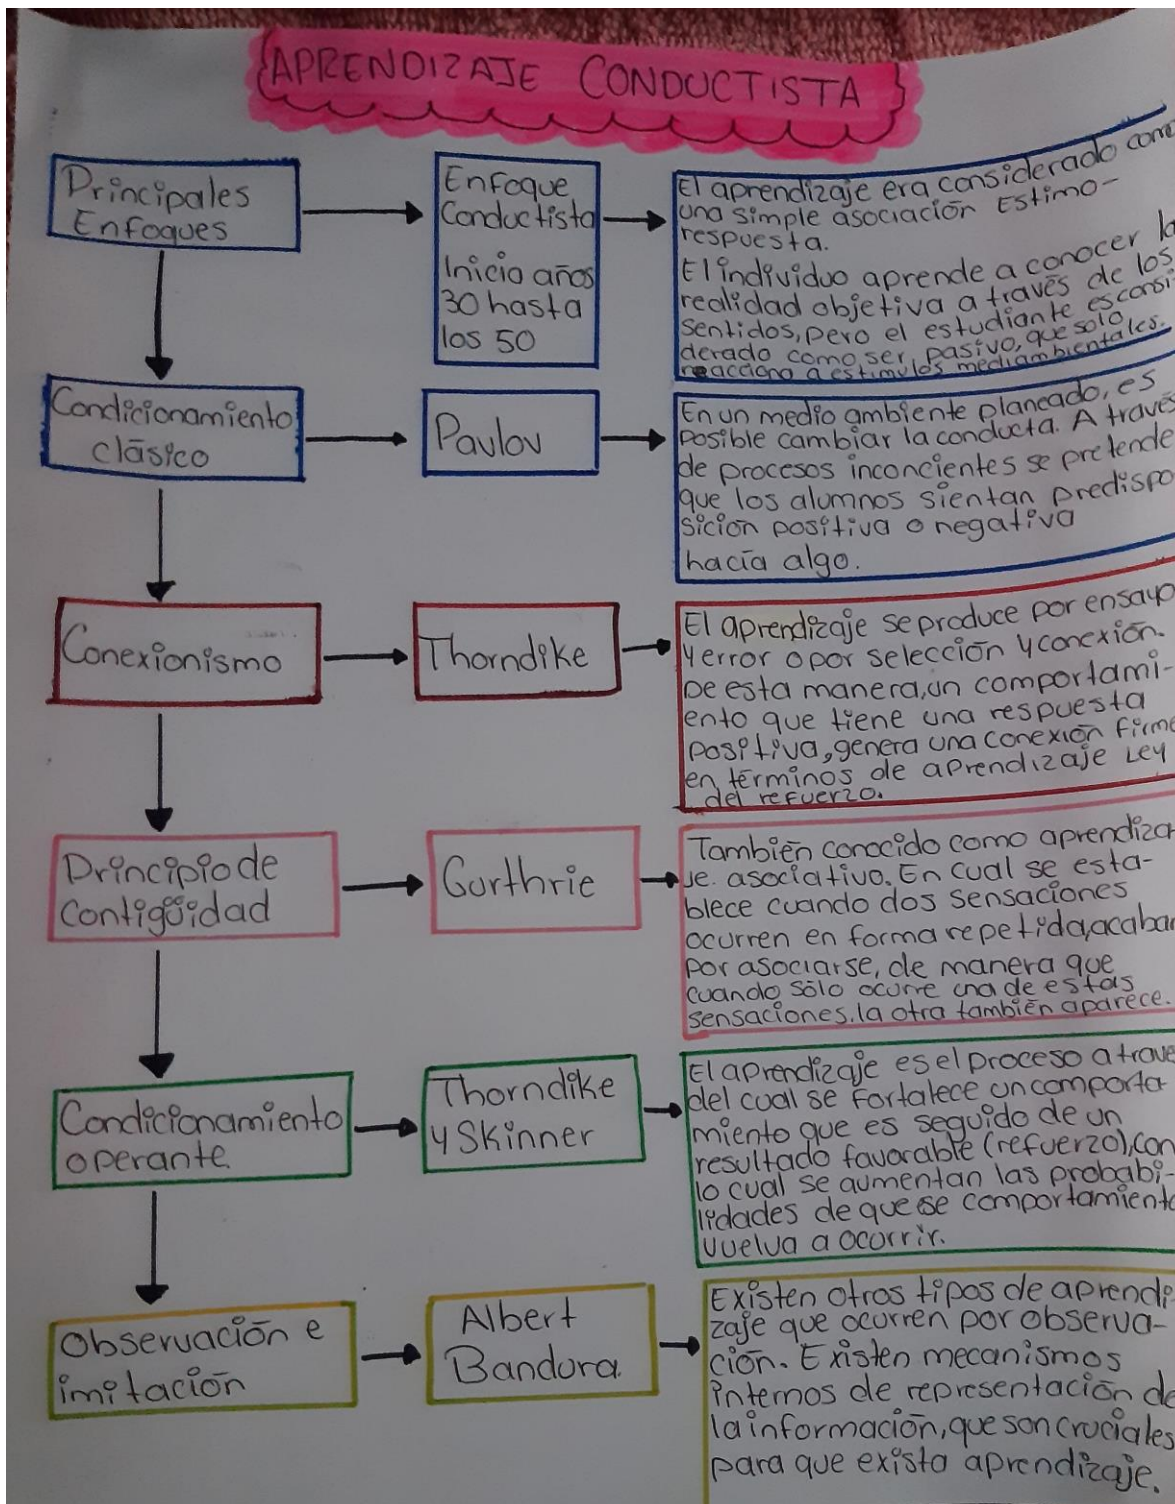 APRENDIZAJE CONDUCTISTA
Principales
Enfoques
Enfoque
Conductista
Inicio años
30 hasta
los 50
El aprendizaje era considerado como
una simple asociación Estimo-
respuesta.
El individuo aprende a conocer la
realidad objetiva a través de los
sentidos, pero el estudiante es consi
derado como ser pasivo, que solo
reacciona a estimulos mediambientales.
Condicionamiento
clásico
Pavlov
En un medio ambiente planeado, es
posible cambiar la conducta. A través
de procesos inconcientes se pretende
que los alumnos sientan predispo
sición positiva o negativa
hacía algo.
Conexionismo
Thorndike
El aprendizaje se produce por ensayo
y error o por selección y conexión.
De esta manera, un comportami-
ento que tiene una respuesta
positiva, genera una conexión firme
en términos de aprendizaje Ley
del refuerzo.
Principio de
Contigüidad
Gurthrie
También conocido como aprendiza
je. asociativo. En cual se esta-
blece cuando dos sensaciones
ocurren en forma repetida, acaban
por asociarse, de manera que
cuando sólo ocurre una de estas
sensaciones, la otra también aparece.
Condicionamiento
operante
Thorndike
y Skinner
El aprendizaje es el proceso a trave
del cual se fortalece un comporta
miento que es seguido de un
resultado favorable (refuerzo), con
lo cual se aumentan las probabi-
lidades de que se comportamiento
vuelva a ocurrir.
Observación e
imitación
Albert
Bandura.
Existen otros tipos de aprendi-
zaje que ocurren por observa-
ción. Existen mecanismos
internos de representación de
la información, que son cruciales
para que exista aprendizaje.